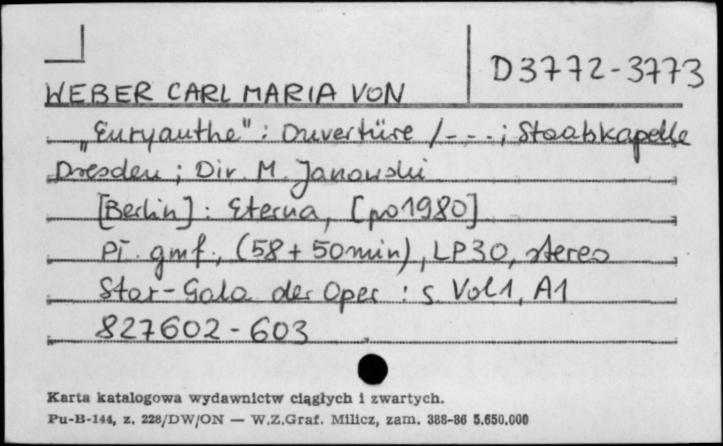 D3772-3773
WEBER CARL MARIA VON
„Euryanthe": Ouvertüre /---; Staatskapelle
Dresden; Dir. M. Janowski
[Berlin]: Eterna, [po1980]
Pł. gmf., (58+50min), LP30, stereo
Star-Gala der Oper : s. Vol1, A1
827602-603
Karta katalogowa wydawnictw ciągłych i zwartych.
Pu-B-144, z. 228/DW/ON — W.Z.Graf. Milicz, zam. 388-86 5.650.000